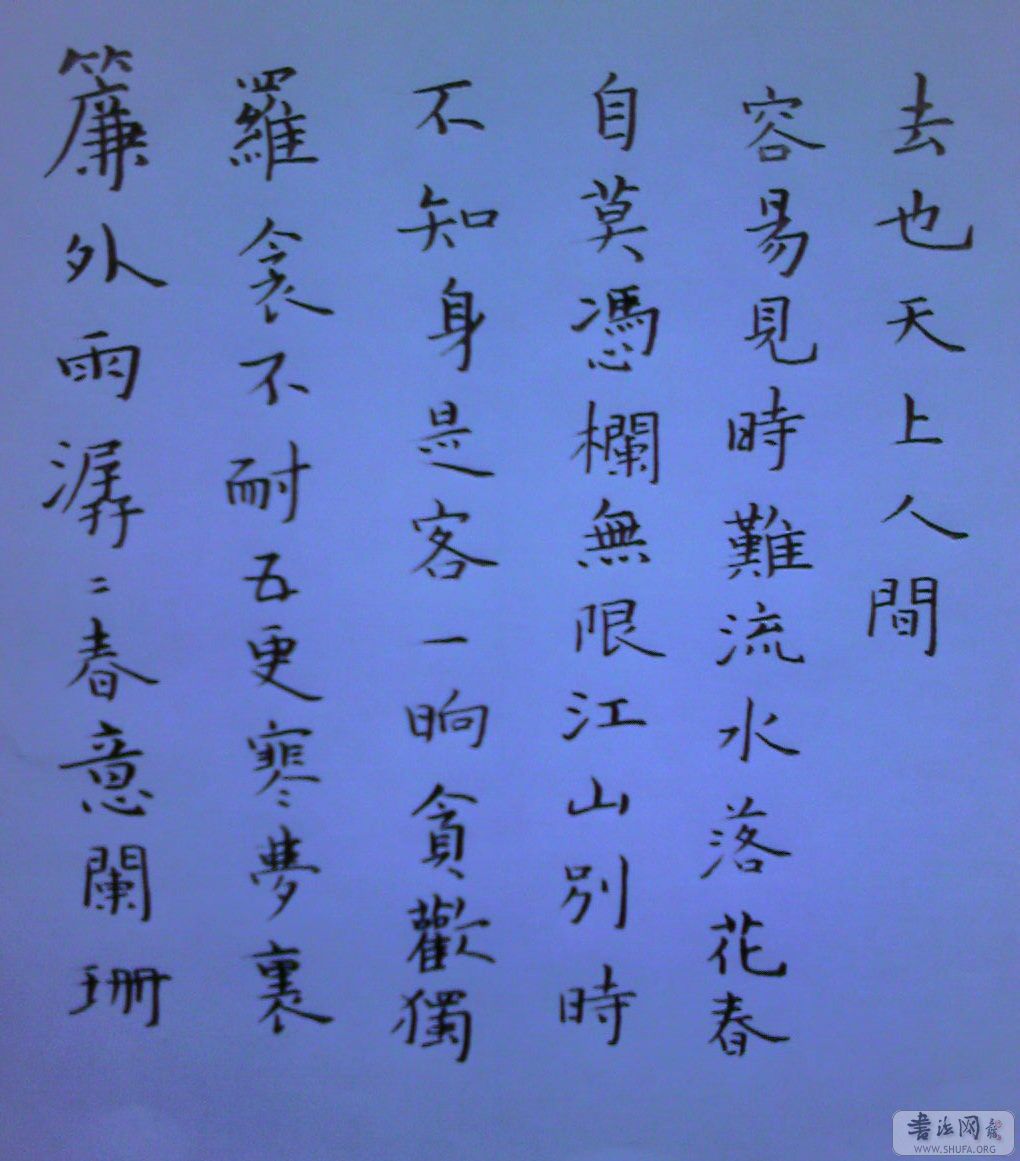 簾外雨潺々春意闌珊
羅衾不耐五更寒夢裏
不知身是客一晌貪歡獨
自莫憑欄無限江山別時
容易見時難流水落花春
去也天上人間
書法网
WWW.SHUFA.ORG